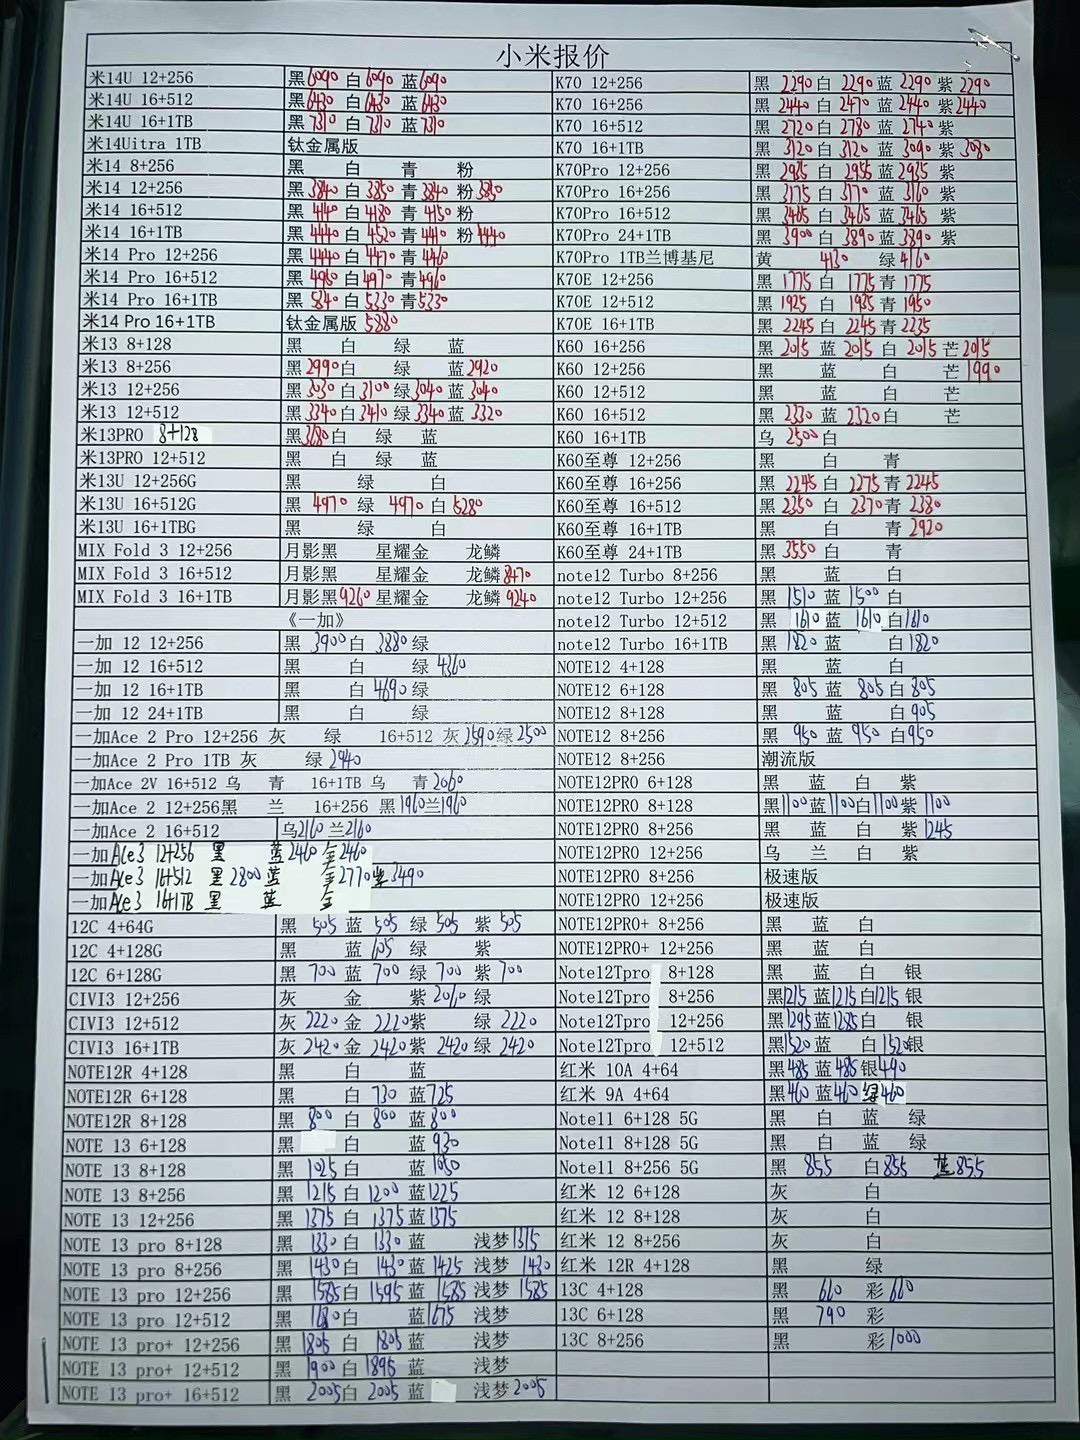 小米报价
米14U 12+256 黑6090 白6090 蓝6090
米14U 16+512 黑6430 白6430 蓝6430
米14U 16+1TB 黑7310 白7310 蓝7310
米14Uitra 1TB 钛金属版
米14 8+256 黑 白 青 粉
米14 12+256 黑3840 白3850 青3840 粉3850
米14 16+512 黑4140 白4180 青4150 粉
米14 16+1TB 黑4440 白4520 青4410 粉4440
米14 Pro 12+256 黑4440 白4470 青4460
米14 Pro 16+512 黑4980 白4970 青4960
米14 Pro 16+1TB 黑5340 白5330 青5330
米14 Pro 16+1TB 钛金属版 5880
米13 8+128 黑 白 绿 蓝
米13 8+256 黑2990 白 绿 蓝2920
米13 12+256 黑3030 白3100 绿3040 蓝3040
米13 12+512 黑3340 白3410 绿3340 蓝3320
米13PRO 8+128 黑3680 白 绿 蓝
米13PRO 12+512 黑 白 绿 蓝
米13U 12+256G 黑 绿 白
米13U 16+512G 黑 4970 绿 4970 白5280
米13U 16+1TBG 黑 绿 白
MIX Fold 3 12+256 月影黑 星耀金 龙鳞
MIX Fold 3 16+512 月影黑 星耀金 龙鳞8470
MIX Fold 3 16+1TB 月影黑9260 星耀金 龙鳞9240
《一加》
一加 12 12+256 黑 3900 白 3880 绿
一加 12 16+512 黑 白 绿 4360
一加 12 16+1TB 黑 白 4690 绿
一加 12 24+1TB 黑 白 绿
一加Ace 2 Pro 12+256 灰 绿 16+512 灰2590 绿2500
一加Ace 2 Pro 1TB 灰 绿 2940
一加Ace 2V 16+512 乌 青 16+1TB 乌 青2060
一加Ace 2 12+256黑 兰 16+256 黑1960 兰1960
一加Ace 2 16+512 乌2160 兰2160
一加Ace3 12+256 黑 蓝2460 金2460
一加Ace3 16+512 黑2800 蓝 金2770 紫3490
一加Ace3 16+1TB 黑 蓝 金
12C 4+64G 黑 505 蓝 505 绿 505 紫 505
12C 4+128G 黑 蓝605 绿 紫
12C 6+128G 黑 700 蓝 700 绿 700 紫 700
CIVI3 12+256 灰 金 紫2060 绿
CIVI3 12+512 灰 2220 金 2220 紫 绿 2220
CIVI3 16+1TB 灰 2420 金 2420 紫 2420 绿 2420
NOTE12R 4+128 黑 白 蓝
NOTE12R 6+128 黑 白 730 蓝725
NOTE12R 8+128 黑 800 白 800 蓝800
NOTE 13 6+128 黑 白 蓝930
NOTE 13 8+128 黑 1025 白 蓝1050
NOTE 13 8+256 黑 1215 白 1200 蓝1225
NOTE 13 12+256 黑 1375 白 1375 蓝1375
NOTE 13 pro 8+128 黑 1330 白 1330 蓝 浅梦1315
NOTE 13 pro 8+256 黑 1430 白 1430 蓝1425 浅梦 1430
NOTE 13 pro 12+256 黑 1585 白 1595 蓝1585 浅梦 1585
NOTE 13 pro 12+512 黑 1680 白 蓝1675 浅梦
NOTE 13 pro+ 12+256 黑1805 白 1805 蓝 浅梦
NOTE 13 pro+ 12+512 黑 1900 白 1895 蓝 浅梦
NOTE 13 pro+ 16+512 黑 2005 白 2005 蓝 浅梦2005
K70 12+256 黑 2290 白 2290 蓝 2290 紫 2290
K70 16+256 黑 2440 白 2470 蓝 2440 紫2440
K70 16+512 黑 2720 白 2780 蓝 2740 紫
K70 16+1TB 黑 3120 白 3120 蓝 3090 紫 3080
K70Pro 12+256 黑 2935 白 2955 蓝 2935 紫
K70Pro 16+256 黑 3175 白 3170 蓝 3160 紫
K70Pro 16+512 黑 3465 白 3465 蓝 3465 紫
K70Pro 24+1TB 黑 3900 白 3890 蓝 3890 紫
K70Pro 1TB兰博基尼 黄 4130 绿4160
K70E 12+256 黑 1775 白 1775 青 1775
K70E 12+512 黑 1925 白 1935 青 1950
K70E 16+1TB 黑 2245 白 2245 青 2235
K60 16+256 黑 2015 蓝 2015 白 2015 芒2015
K60 12+256 黑 蓝 白 芒1990
K60 12+512 黑 蓝 白 芒
K60 16+512 黑 2330 蓝 2320 白 芒
K60 16+1TB 乌 2500 白
K60至尊 12+256 黑 白 青
K60至尊 16+256 黑 2245 白 2275 青 2245
K60至尊 16+512 黑 2350 白 2370 青 2380
K60至尊 16+1TB 黑 白 青 2920
K60至尊 24+1TB 黑 3550 白 青
note12 Turbo 8+256 黑 蓝 白
note12 Turbo 12+256 黑 1510 蓝 1500 白
note12 Turbo 12+512 黑 1610 蓝 1610 白1610
note12 Turbo 16+1TB 黑 1820 蓝 白1820
NOTE12 4+128 黑 蓝 白
NOTE12 6+128 黑 805 蓝 805 白805
NOTE12 8+128 黑 蓝 白905
NOTE12 8+256 黑 950 蓝 950 白950
NOTE12 8+256 潮流版
NOTE12PRO 6+128 黑 蓝 白 紫
NOTE12PRO 8+128 黑1100 蓝1100 白1100 紫 1100
NOTE12PRO 8+256 黑 蓝 白 紫 1245
NOTE12PRO 12+256 乌 兰 白 紫
NOTE12PRO 8+256 极速版
NOTE12PRO 12+256 极速版
NOTE12PRO+ 8+256 黑 蓝 白
NOTE12PRO+ 12+256 黑 蓝 白
Note12Tpro 8+128 黑 蓝 白 银
Note12Tpro 8+256 黑1215 蓝1215 白1215 银
Note12Tpro 12+256 黑1295 蓝1285 白 银
Note12Tpro 12+512 黑1520 蓝 白1520 银
红米 10A 4+64 黑485 蓝485 银490
红米 9A 4+64 黑460 蓝460 绿460
Note11 6+128 5G 黑 白 蓝 绿
Note11 8+128 5G 黑 白 蓝 绿
Note11 8+256 5G 黑 855 白855 蓝855
红米 12 6+128 灰 白
红米 12 8+128 灰 白
红米 12 8+256 灰 白
红米 12R 4+128 黑 绿
13C 4+128 黑 660 彩660
13C 6+128 黑 790 彩
13C 8+256 黑 彩1000